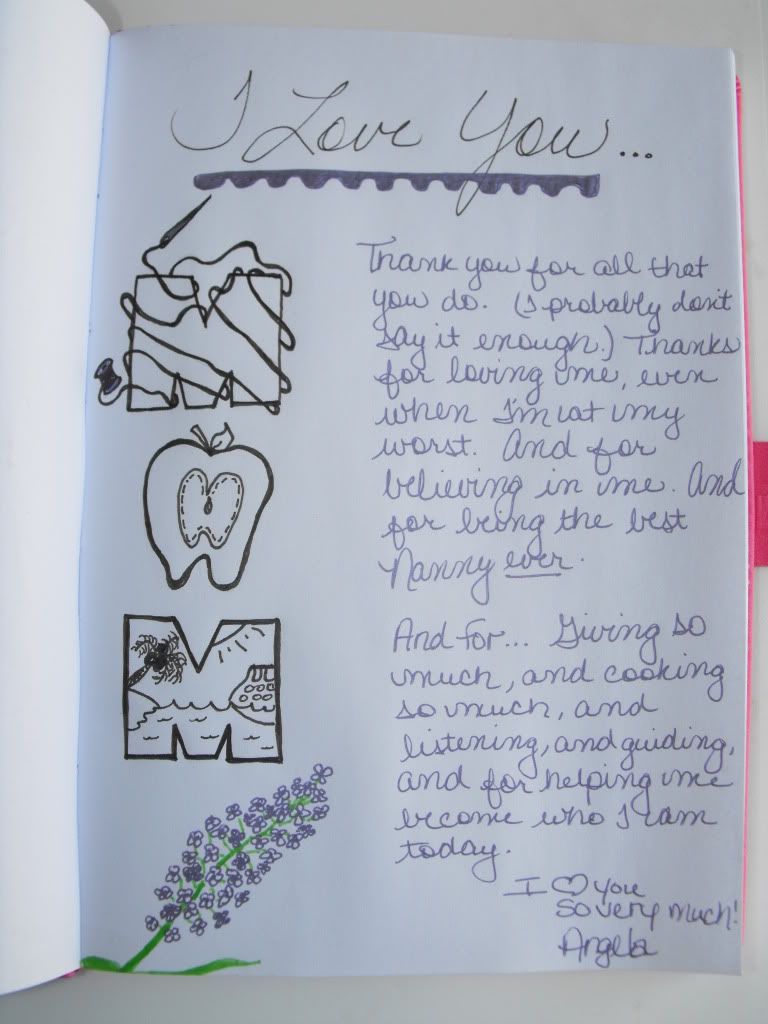 I Love You...
Thank you for all that
you do. (I probably don't
say it enough.) Thanks
for loving me, even
when I'm at my
worst. And for
believing in me. And
for being the best
Nanny ever.
And for... Giving so
much, and cooking
so much, and
listening, and guiding,
and for helping me
become who I am
today.
I ♡ you
so very much!
Angela
M
M
M